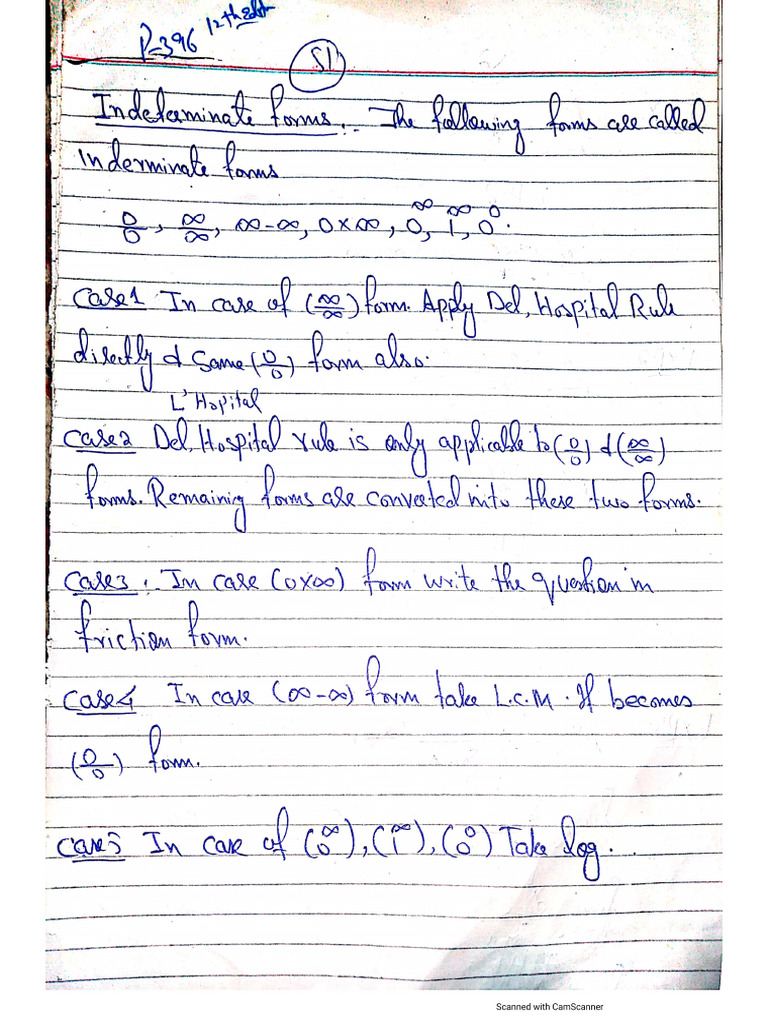 P-396 12th edt
51
Indeterminate forms:. The following forms are called
Inderminate forms
0/0, ∞/∞, ∞-∞, 0×∞, 0^∞, 1^∞, 0^0.
Case1 In case of (∞/∞) form. Apply Del, Hospital Rule
directly & Same (0/0) form also.
L'Hopital
Case2 Del, Hospital rule is only applicable to (0/0) & (∞/∞)
forms. Remainig forms are converted into these two forms.
Case3:. In case (0×∞) form write the question in
friction form.
Case4 In case (∞-∞) form take L.C.M. If becomes
(0/0) form.
Case5 In case of (0^∞), (1^∞), (0^0) Take log...
Scanned with CamScanner